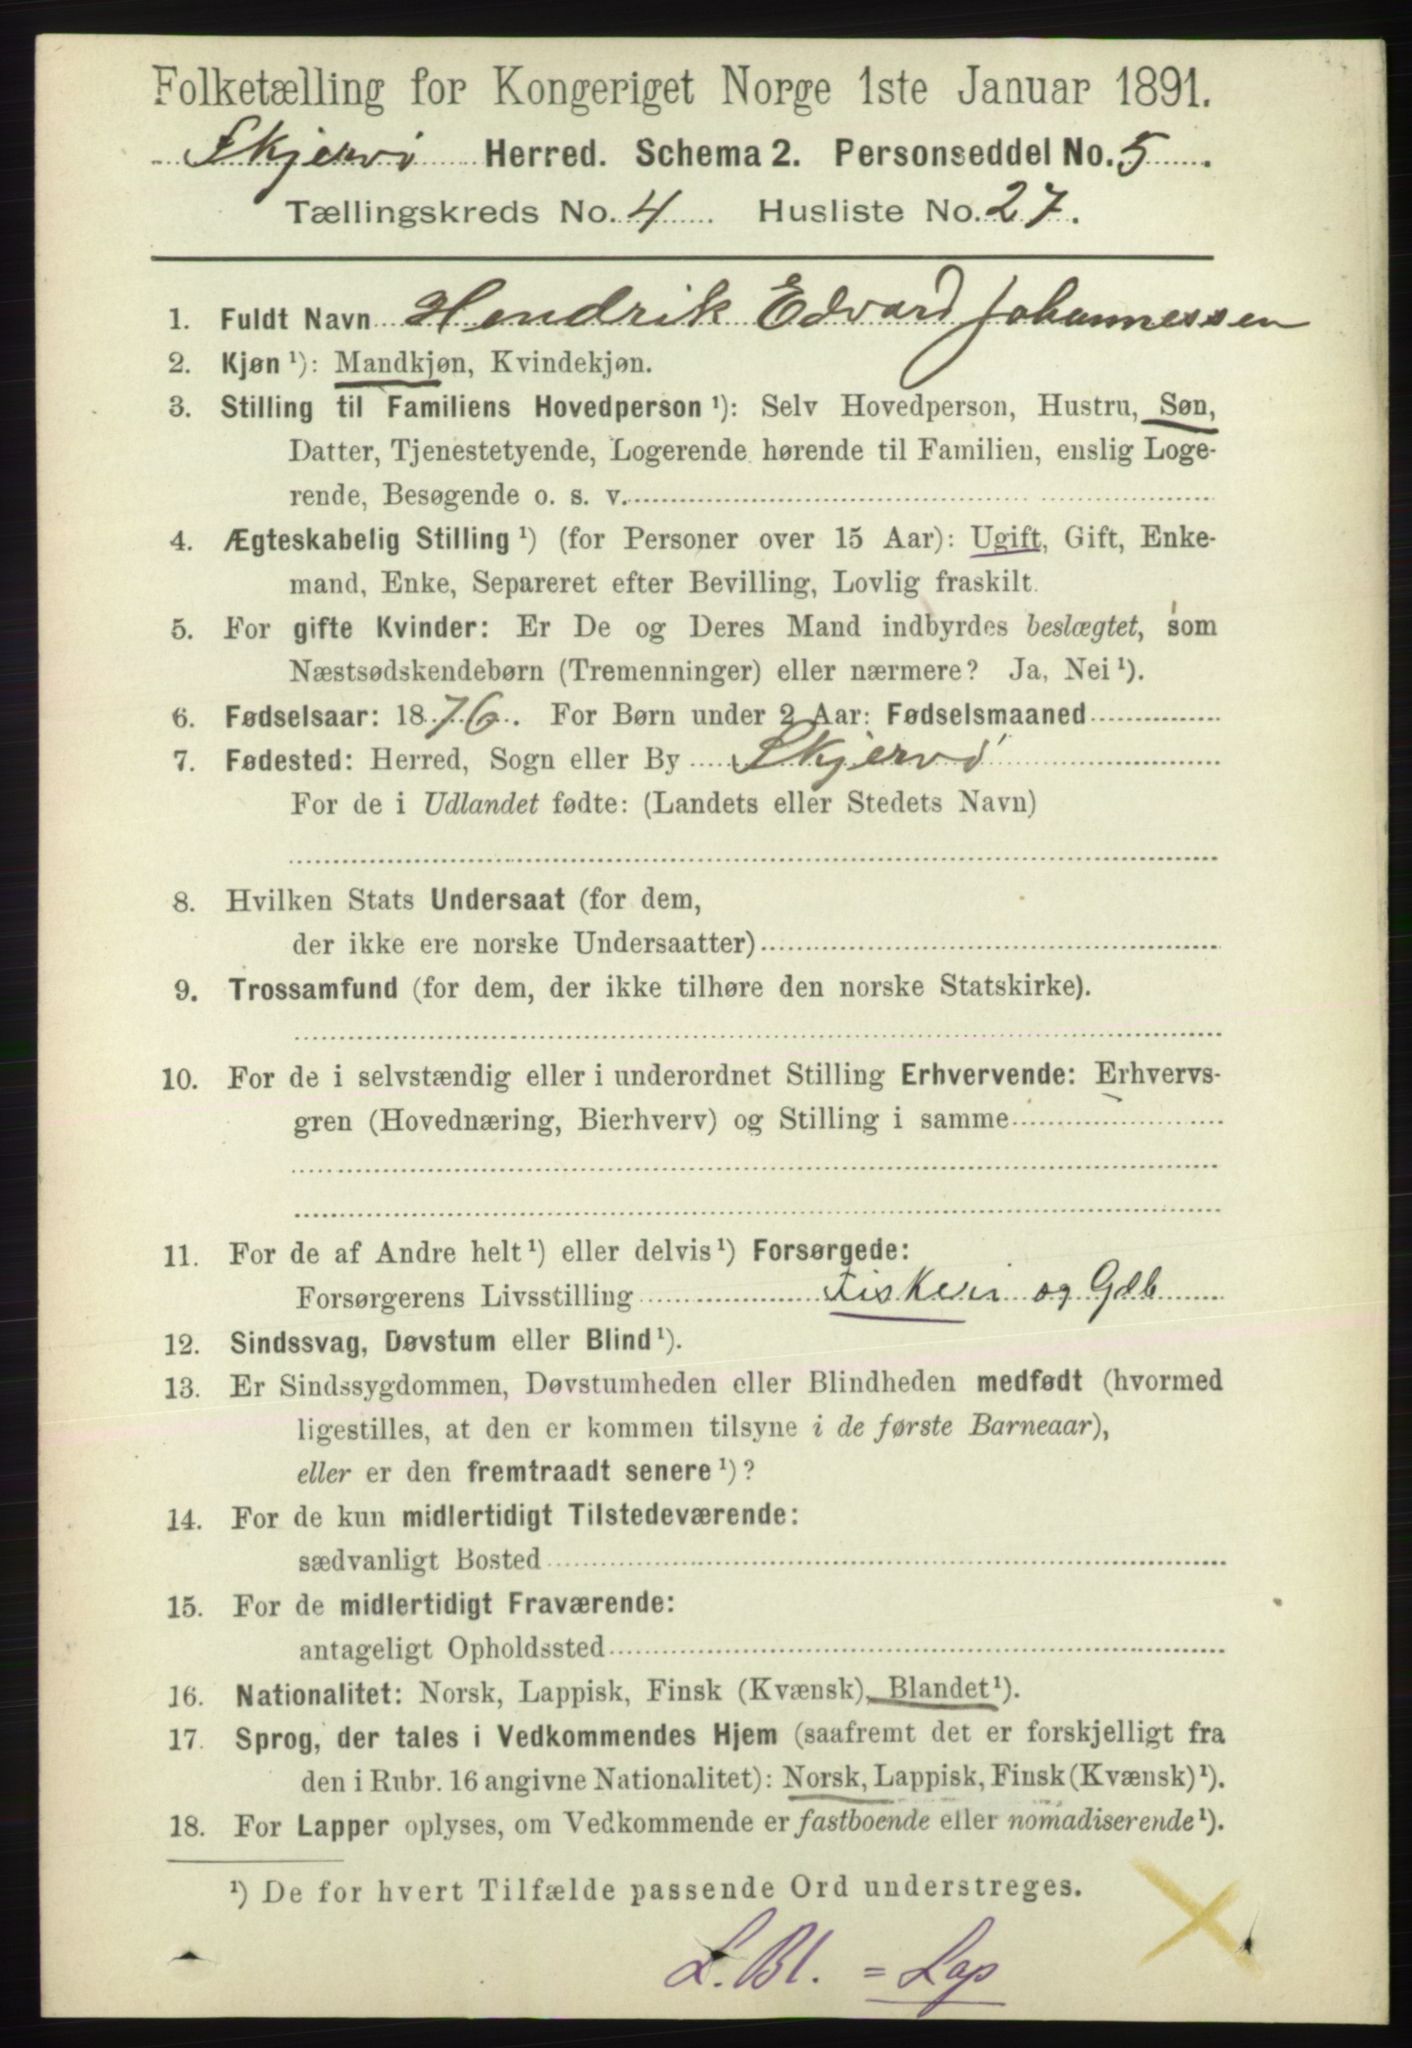 Folketælling for Kongeriget Norge 1ste Januar 1891.
Skjervø Herred. Schema 2. Personseddel No. 5.
Tællingskreds No. 4 Husliste No. 27.
1. Fuldt Navn Hendrik Edvard Johannessen
2. Kjøn ¹): Mandkjøn, Kvindekjøn.
3. Stilling til Familiens Hovedperson ¹): Selv Hovedperson, Hustru, Søn,
Datter, Tjenestetyende, Logerende hørende til Familien, enslig Loge-
rende, Besøgende o. s. v.
4. Ægteskabelig Stilling ¹) (for Personer over 15 Aar): Ugift, Gift, Enke-
mand, Enke, Separeret efter Bevilling, Lovlig fraskilt.
5. For gifte Kvinder: Er De og Deres Mand indbyrdes beslægtet, som
Næstsødskendebørn (Tremenninger) eller nærmere? Ja, Nei ¹).
6. Fødselsaar: 1876. For Børn under 2 Aar: Fødselsmaaned
7. Fødested: Herred, Sogn eller By Skjervø
For de i Udlandet fødte: (Landets eller Stedets Navn)
8. Hvilken Stats Undersaat (for dem,
der ikke ere norske Undersaatter)
9. Trossamfund (for dem, der ikke tilhøre den norske Statskirke).
10. For de i selvstændig eller i underordnet Stilling Erhvervende: Erhvervs-
gren (Hovednæring, Bierhverv) og Stilling i samme
11. For de af Andre helt ¹) eller delvis ¹) Forsørgede:
Forsørgerens Livsstilling Fiskeri og Gdb
12. Sindssvag, Døvstum eller Blind ¹).
13. Er Sindssygdommen, Døvstumheden eller Blindheden medfødt (hvormed
ligestilles, at den er kommen tilsyne i de første Barneaar),
eller er den fremtraadt senere ¹)?
14. For de kun midlertidigt Tilstedeværende:
sædvanligt Bosted
15. For de midlertidigt Fraværende:
antageligt Opholdssted
16. Nationalitet: Norsk, Lappisk, Finsk (Kvænsk), Blandet ¹).
17. Sprog, der tales i Vedkommendes Hjem (saafremt det er forskjelligt fra
den i Rubr. 16 angivne Nationalitet): Norsk, Lappisk, Finsk (Kvænsk) ¹).
18. For Lapper oplyses, om Vedkommende er fastboende eller nomadiserende ¹).
¹) De for hvert Tilfælde passende Ord understreges.
L. Bl. = Lap